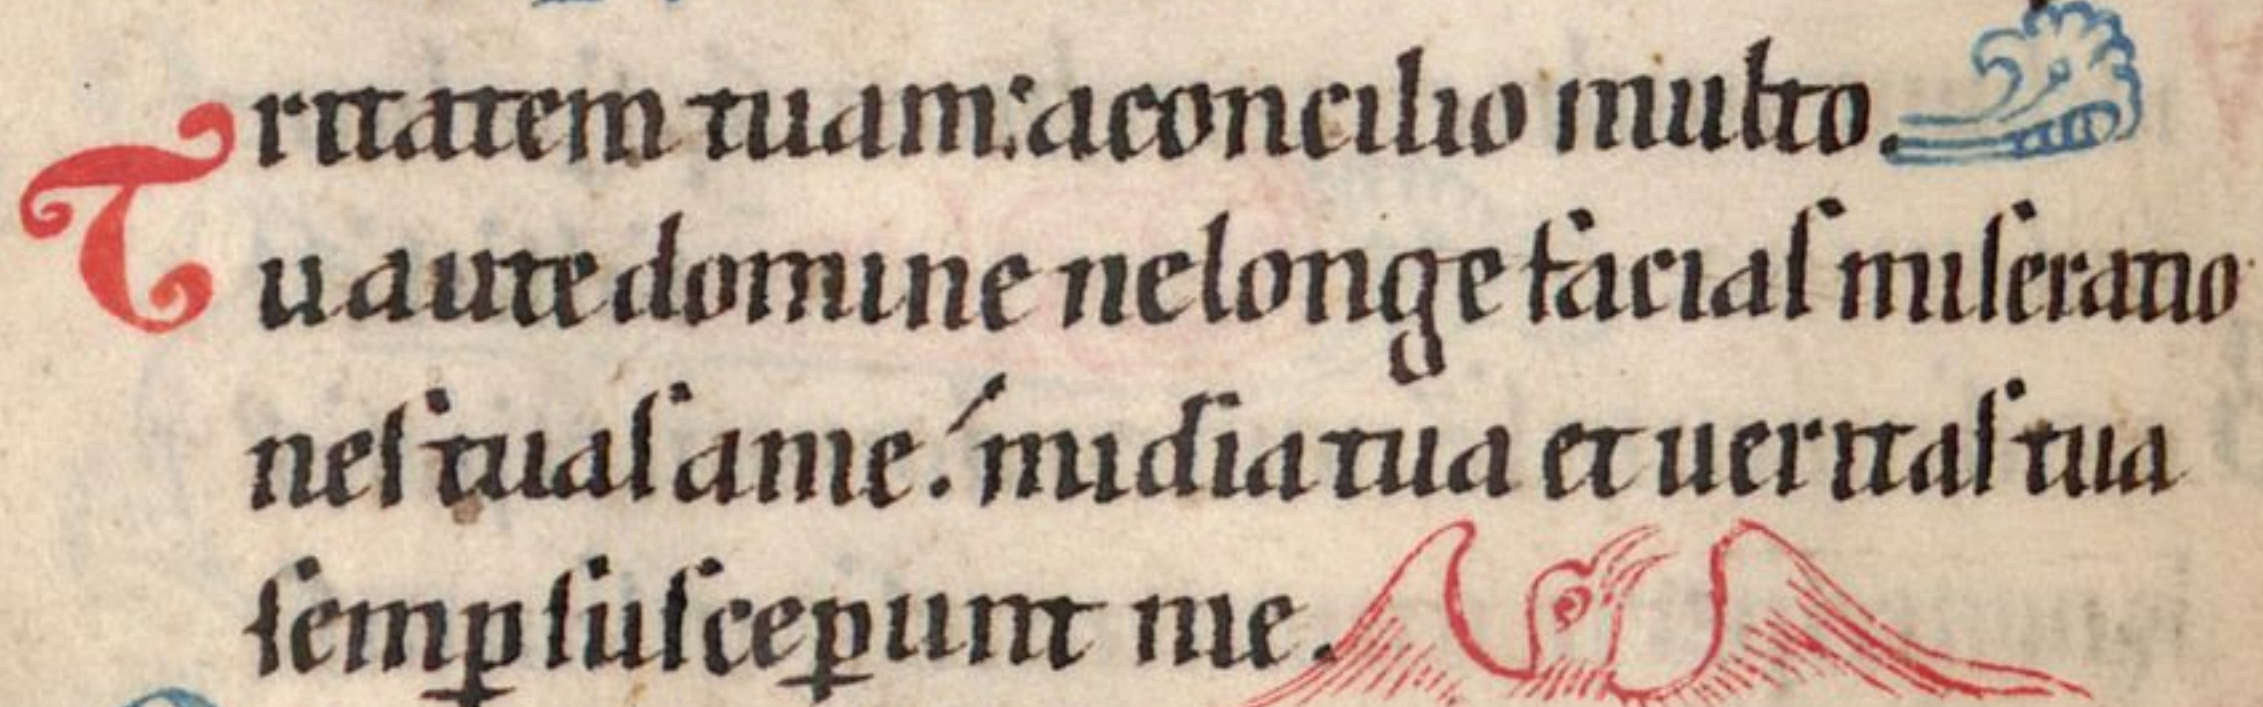 ritatem tuam: a concilio multo.
Tu aute domine ne longe facias miseratio
nes tuas a me: mi​dia tua et ueritas tua
semꝑ susceꝑunt me.